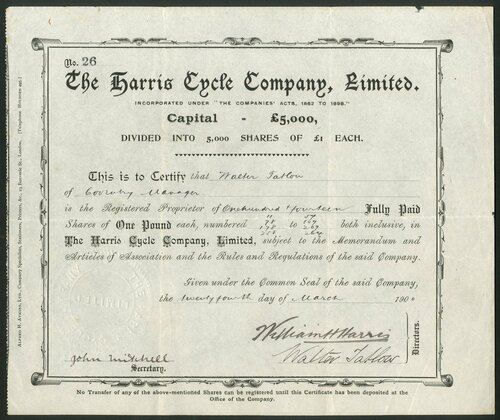 No. 26
The Harris Cycle Company, Limited.
INCORPORATED UNDER "THE COMPANIES' ACTS, 1862 TO 1898."
Capital - £5,000,
DIVIDED INTO 5,000 SHARES OF £1 EACH.
This is to Certify that Walter Tatlow
of Coventry Manager
is the Registered Proprietor of One hundred & fourteen Fully Paid
Shares of One Pound each, numbered to both inclusive, in
The Harris Cycle Company, Limited, subject to the Memorandum and
Articles of Association and the Rules and Regulations of the said Company.
Given under the Common Seal of the said Company,
the twenty fourth day of March 190
William H Harris
Walter Tatlow
Directors.
John Mitchell
Secretary.
No Transfer of any of the above-mentioned Shares can be registered until this Certificate has been deposited at the
Office of the Company.